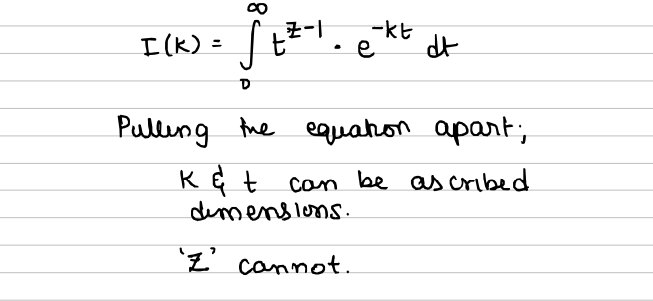 I(K) = ∫₀^∞ t^{z-1} · e^{-kt} dt
Pulling the equation apart;
K & t can be ascribed
dimensions.
'Z' cannot.